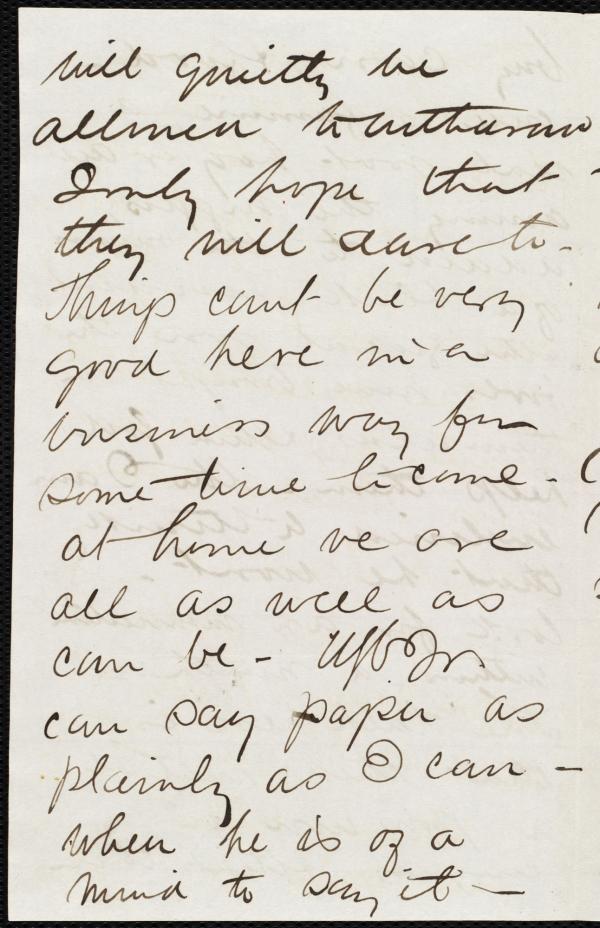 will quietly be
allowed to withdraw
I only hope that
they will dare to -
Things can't be very
good here in a
business way for
some time to come -
at home we are
all as well as
can be - Jr
can say paper as
plainly as I can -
when he is of a
mind to say it -